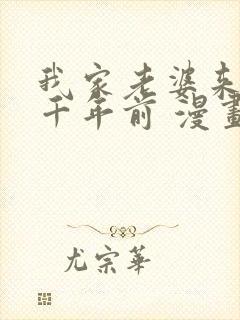 我家老婆来
千年前 漫畫
尤宗華